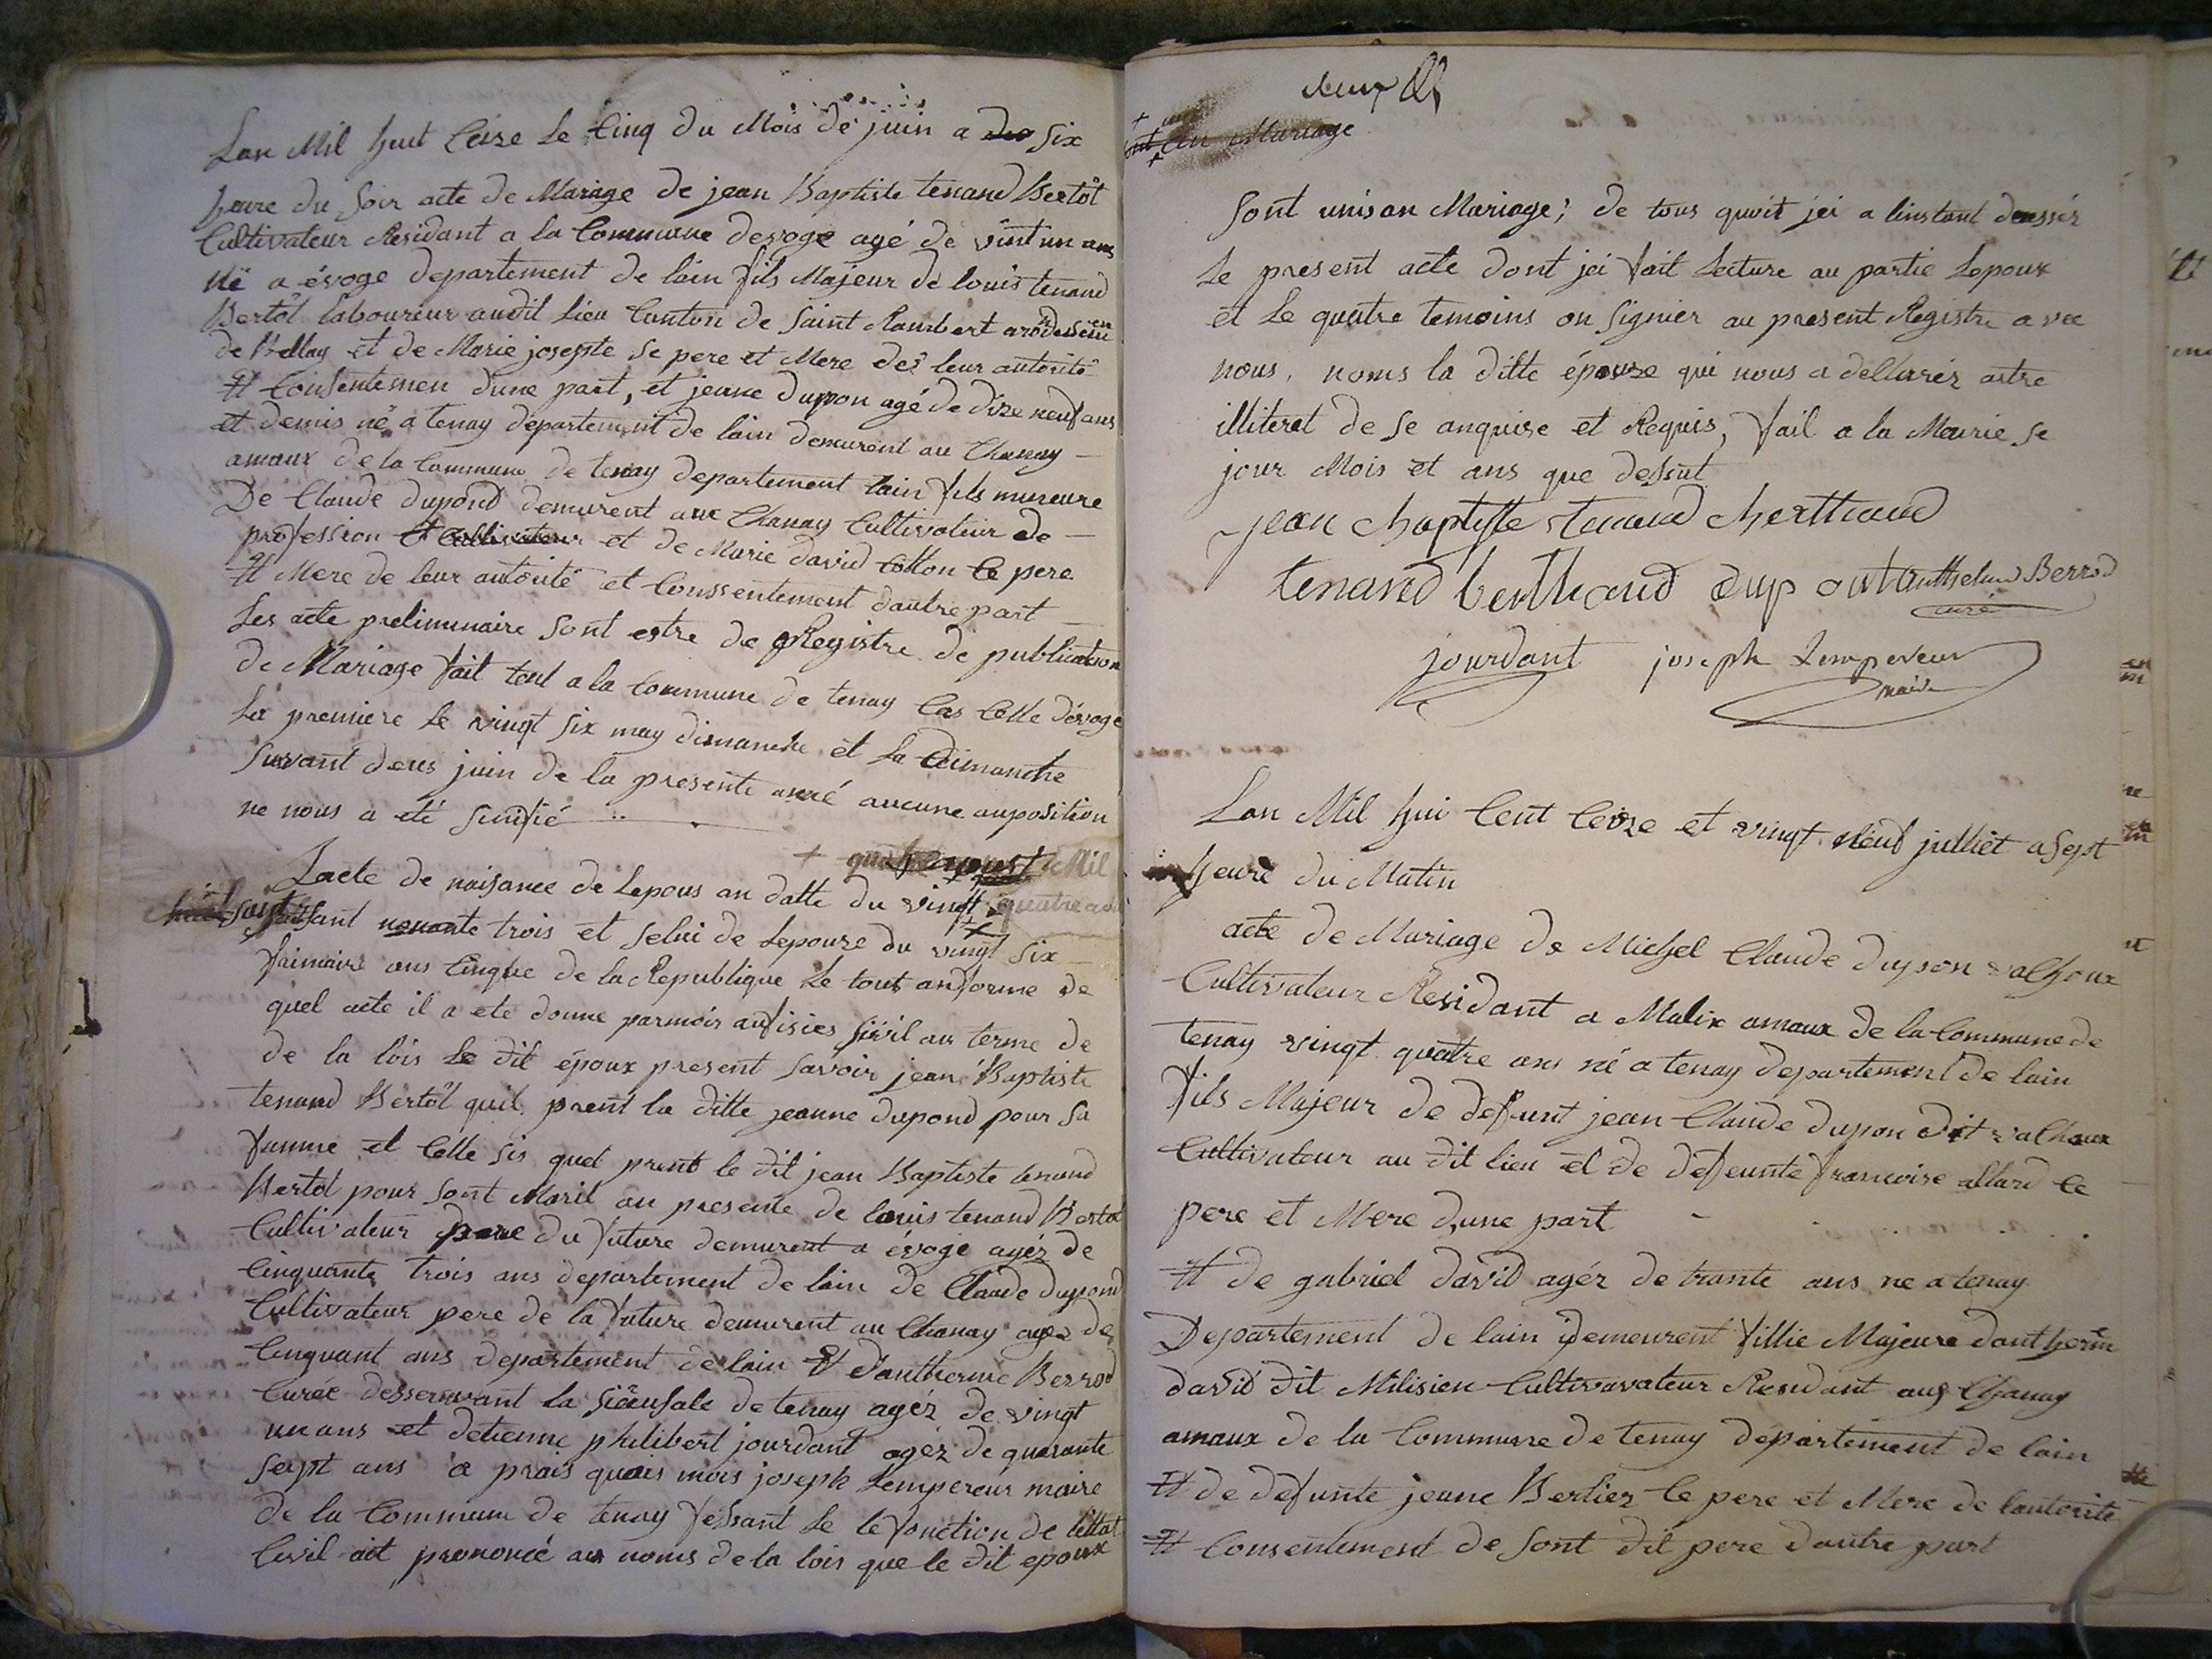 Lan Mil huit Ceize Le Cinq du Mois de juin a six
heure du Soir acte de Mariage de jean Baptiste tenand Bertôt
Cultivateur Residant a la Commune devoge agé de vint un ans
né a évoge departement de lain fils Majeur de louis tenand
Bertôt laboureur audit Lieu Canton de Saint Rambert
de Bellay et de Marie josepte Se pere et Mere de leur autorité
et Consentemen dune part, et jeanne dupon agé de dize neuf ans
et demis né a tenay departement de lain demurent au Chanay
amaux de la Commune de tenay departement lain fils mureure
De Claude dupond demurent aux Chanay Cultivateur de
profession et Cultivateur et de Marie david Collon Ce pere
et Mere de leur autorité et Conssentement dautre part
Les acte preliminaire Sont estre de Registre de publication
de Mariage fait tent a la Commune de tenay Cas Celle dévoge
La premiere Le vingt six may dimanche et La dimanche
Suivant deus juin de la presente anné aucune auposition
ne nous a eté Sinifié
Mil
Lacte de naisance de Lepous an datte du vingt quatre
trois et Selui de Lepouze du vingt Six
frimaire ans Cinqhe de la Republique Le tout anforme de
quel acte il a ete donne parmoir aufisies Sivil au terme de
de la lois Le dit époux present Savoir jean Baptiste
tenand Bertôt quil prent la ditte jeanne dupond pour Sa
famme et Celle Sis quel prent le dit jean Baptiste tenand
Bertot pour Sont Maril au presente de louis tenand Bertot
Cultivateur pere du future demurent a évoge agéz de
Cinquante trois ans departement de lain de Claude dupond
Cultivateur pere de la future demurent au Chanay agez de
Cinquant ans departement de lain et dantherme Berrod
Curée desservant la de tenay agéz de vingt
un ans et detienne philibert jourdant agéz de quarante
Sept ans a prais quais mois joseph Lempereur maire
de la Commune de tenay fessant Le le fonction de lettat
Civil ait prononcé au noms de la lois que le dit epoux
deux
un
an Mariage
Sont unis an Mariage; de tous quoit jei a linstant dressér
Le present acte dont jei fait Lecture au partie Lepoux
et Le quatre temoins on Signier au present Registre avec
nous, noms la ditte épouze qui nous a dellarér astre
illiteret de Se anquise et Requis, fait a la Mairie Se
jour Mois et ans que dessut
jean baptiste tenand berthaud
tenand berthaud dupont Anthelme Berrod
curé
jourdant joseph Lempereur
maire
Lan Mil hui Cent Ceize et vingt neuf julliet a Sept
heure du Matin
acte de Mariage de Michel Claude dupon valhoux
Cultivateur Residant a Malix amaux de la Commune de
tenay vingt quatre ans né a tenay departement de lain
fils Majeur de defunt jean Claude dupon dit valhoux
Cultivateur au dit lieu et de defeunte francoise allard Ce
pere et Mere d,une part
et de gabriel david agéz de trante ans ne a tenay
Departement de lain demeurent fillie Majeure dantherme
david dit Milisien Cultivavateur Residant aux Chanay
amaux de la Commune de tenay departement de lain
et de defunte jeane Berliez Ce pere et Mere de lautorité
et Consentement de Sont dit pere dautre part